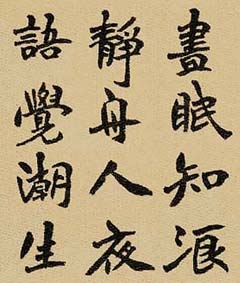 晝眠知浪
靜舟人夜
語覺潮生